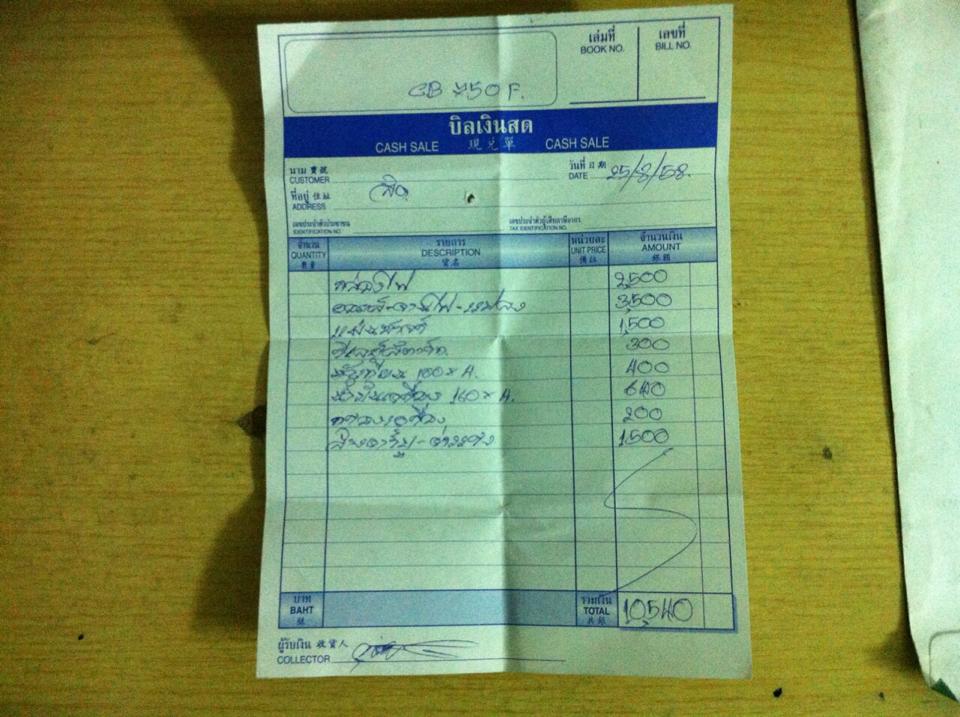 เล่มที่ เลขที่
BOOK NO. BILL NO.
CB 750 F.
บิลเงินสด
CASH SALE 現兌單 CASH SALE
นาม 寶號 วันที่ 日期
CUSTOMER DATE 25/8/58.
ที่อยู่ 住址
ADDRESS
เลขประจำตัวประชาชน เลขประจำตัวผู้เสียภาษีอากร
IDENTIFICATION NO. TAX IDENTIFICATION NO.
จำนวน รายการ หน่วยละ จำนวนเงิน
QUANTITY DESCRIPTION UNIT PRICE AMOUNT
數量 貨名 價銀 銀額
กล่องไฟ 2,500
3,500
1,500
300
หัวเทียน 100 x 4. 400
น้ำมันเครื่อง 160 x 4. 640
กรองเครื่อง 200
1,500
บาท รวมเงิน
BAHT TOTAL 10,540
銖 共銀
ผู้รับเงิน 收貨人
COLLECTOR